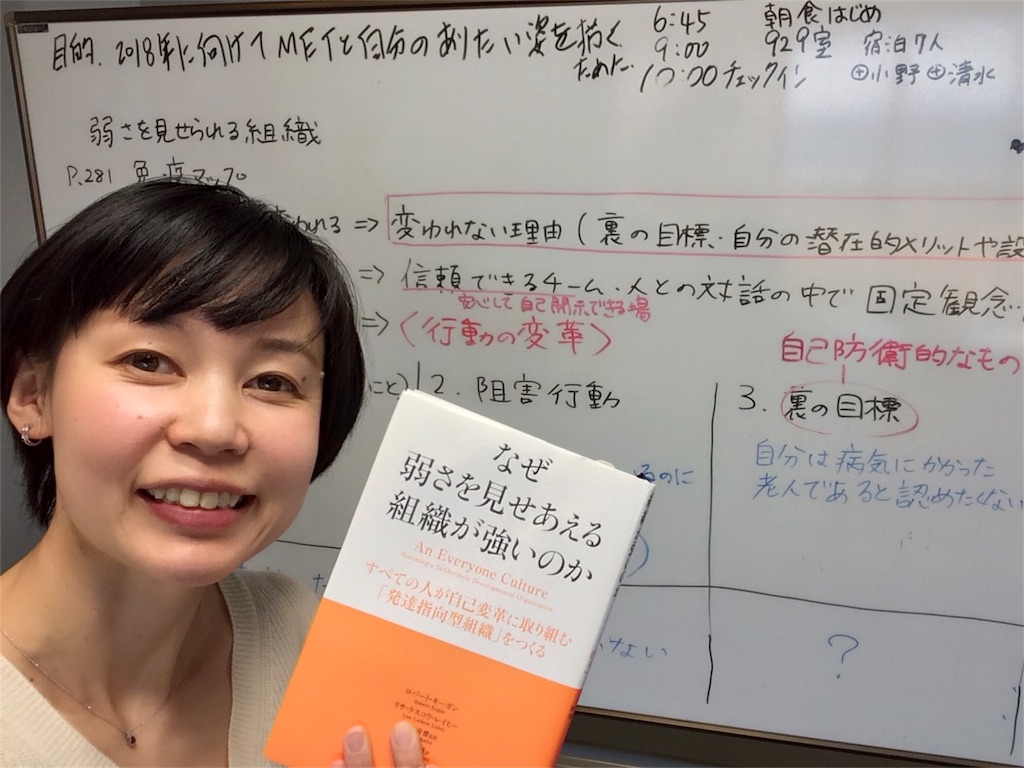 目的. 2018年に向けてMETと自分のありたい姿を描く
ために
6:45 朝食はじめ
9:00 929室 宿泊7人
10:00 チェックイン ⊕小野 ⊕清水
弱さを見せられる組織
P.281 免疫マップ
変われる ⇒ 変われない理由(裏の目標・自分の潜在的メリットや設
⇒ 信頼できるチーム・人との対話の中で 固定観念
安心して自己開示できる場
⇒ 〈行動の変革〉
自己防衛的なもの
こと) 2. 阻害行動
3. 裏の目標
るのに
自分は病気にかかった
老人であると認めたくない
ない
?
なぜ
弱さを見せあえる
組織が強いのか
An Everyone Culture
Becoming a Deliberately Developmental Organization
すべての人が自己変革に取り組む
「発達指向型組織」をつくる
ロバート・キーガン
Robert Kegan
リサ・ラスコウ・レイヒー
Lisa Laskow Lahey